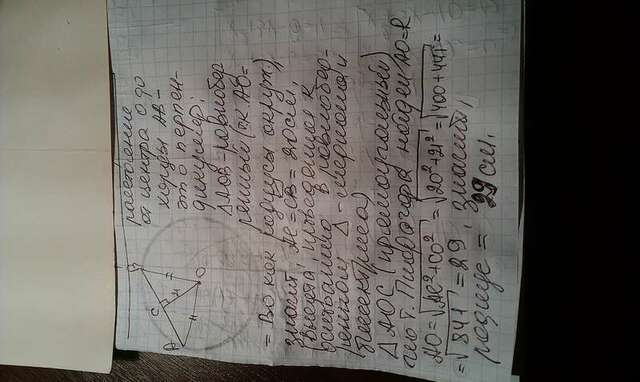 расстояние
от центра О до
хорды АВ -
это перпен-
дикуляр.
Δ АОВ равнобед-
ренный (т.к АО=
= ВО как радиусы окруж.)
значит, АС = СВ = 20 см,
(высота, проведенная к
основанию в равнобед-
ренном Δ - медиана и
биссектриса)
Δ АОС (прямоугольный)
по т. Пифагора найдем АО=R
АО=√АС²+СО² = √20²+21² = √400+441 =
= √841 = 29, значит,
радиус = 29 см.
А
С
В
О